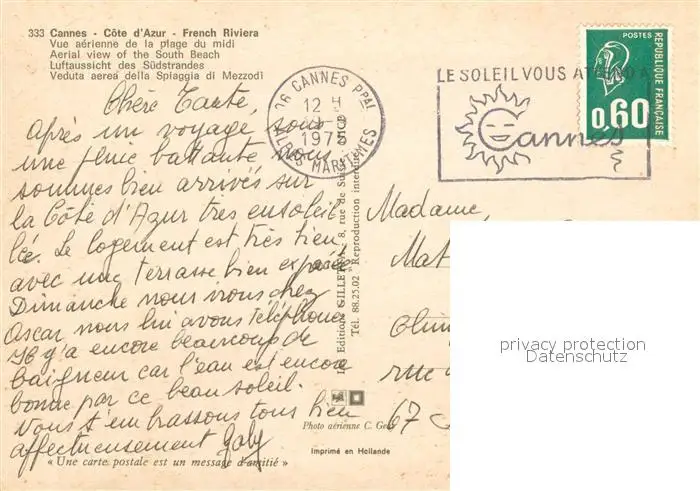 333 Cannes - Côte d'Azur - French Riviera
Vue aérienne de la plage du midi
Aerial view of the South Beach
Luftaussicht des Südstrandes
Veduta aerea della Spiaggia di Mezzodi
Chère Tante,
Après un voyage sous
une pluie battante nous
sommes bien arrivés sur
la Côte d'Azur très ensoleil
lée. Le logement est très bien
avec une terrasse bien exposée
Dimanche nous irons chez
Oscar nous lui avons téléphoné
Il y a encore beaucoup de
baigneur car l'eau est encore
bonne par ce beau soleil.
Vous t'embrassons tous bien
affectueusement Gaby
« Une carte postale est un message d'amitié »
06 CANNES Ppal
12 H
1975
ALPES MARITIMES
LE SOLEIL VOUS ATTEND A
Cannes
POSTES
0,60
REPUBLIQUE FRANÇAISE
Editions GILLETTA - 8, rue de
Tél. 88.25.02 Reproduction interdite
Madame,
Mat
rue
67
Photo aérienne C.
Imprimé en Hollande
privacy protection
Datenschutz